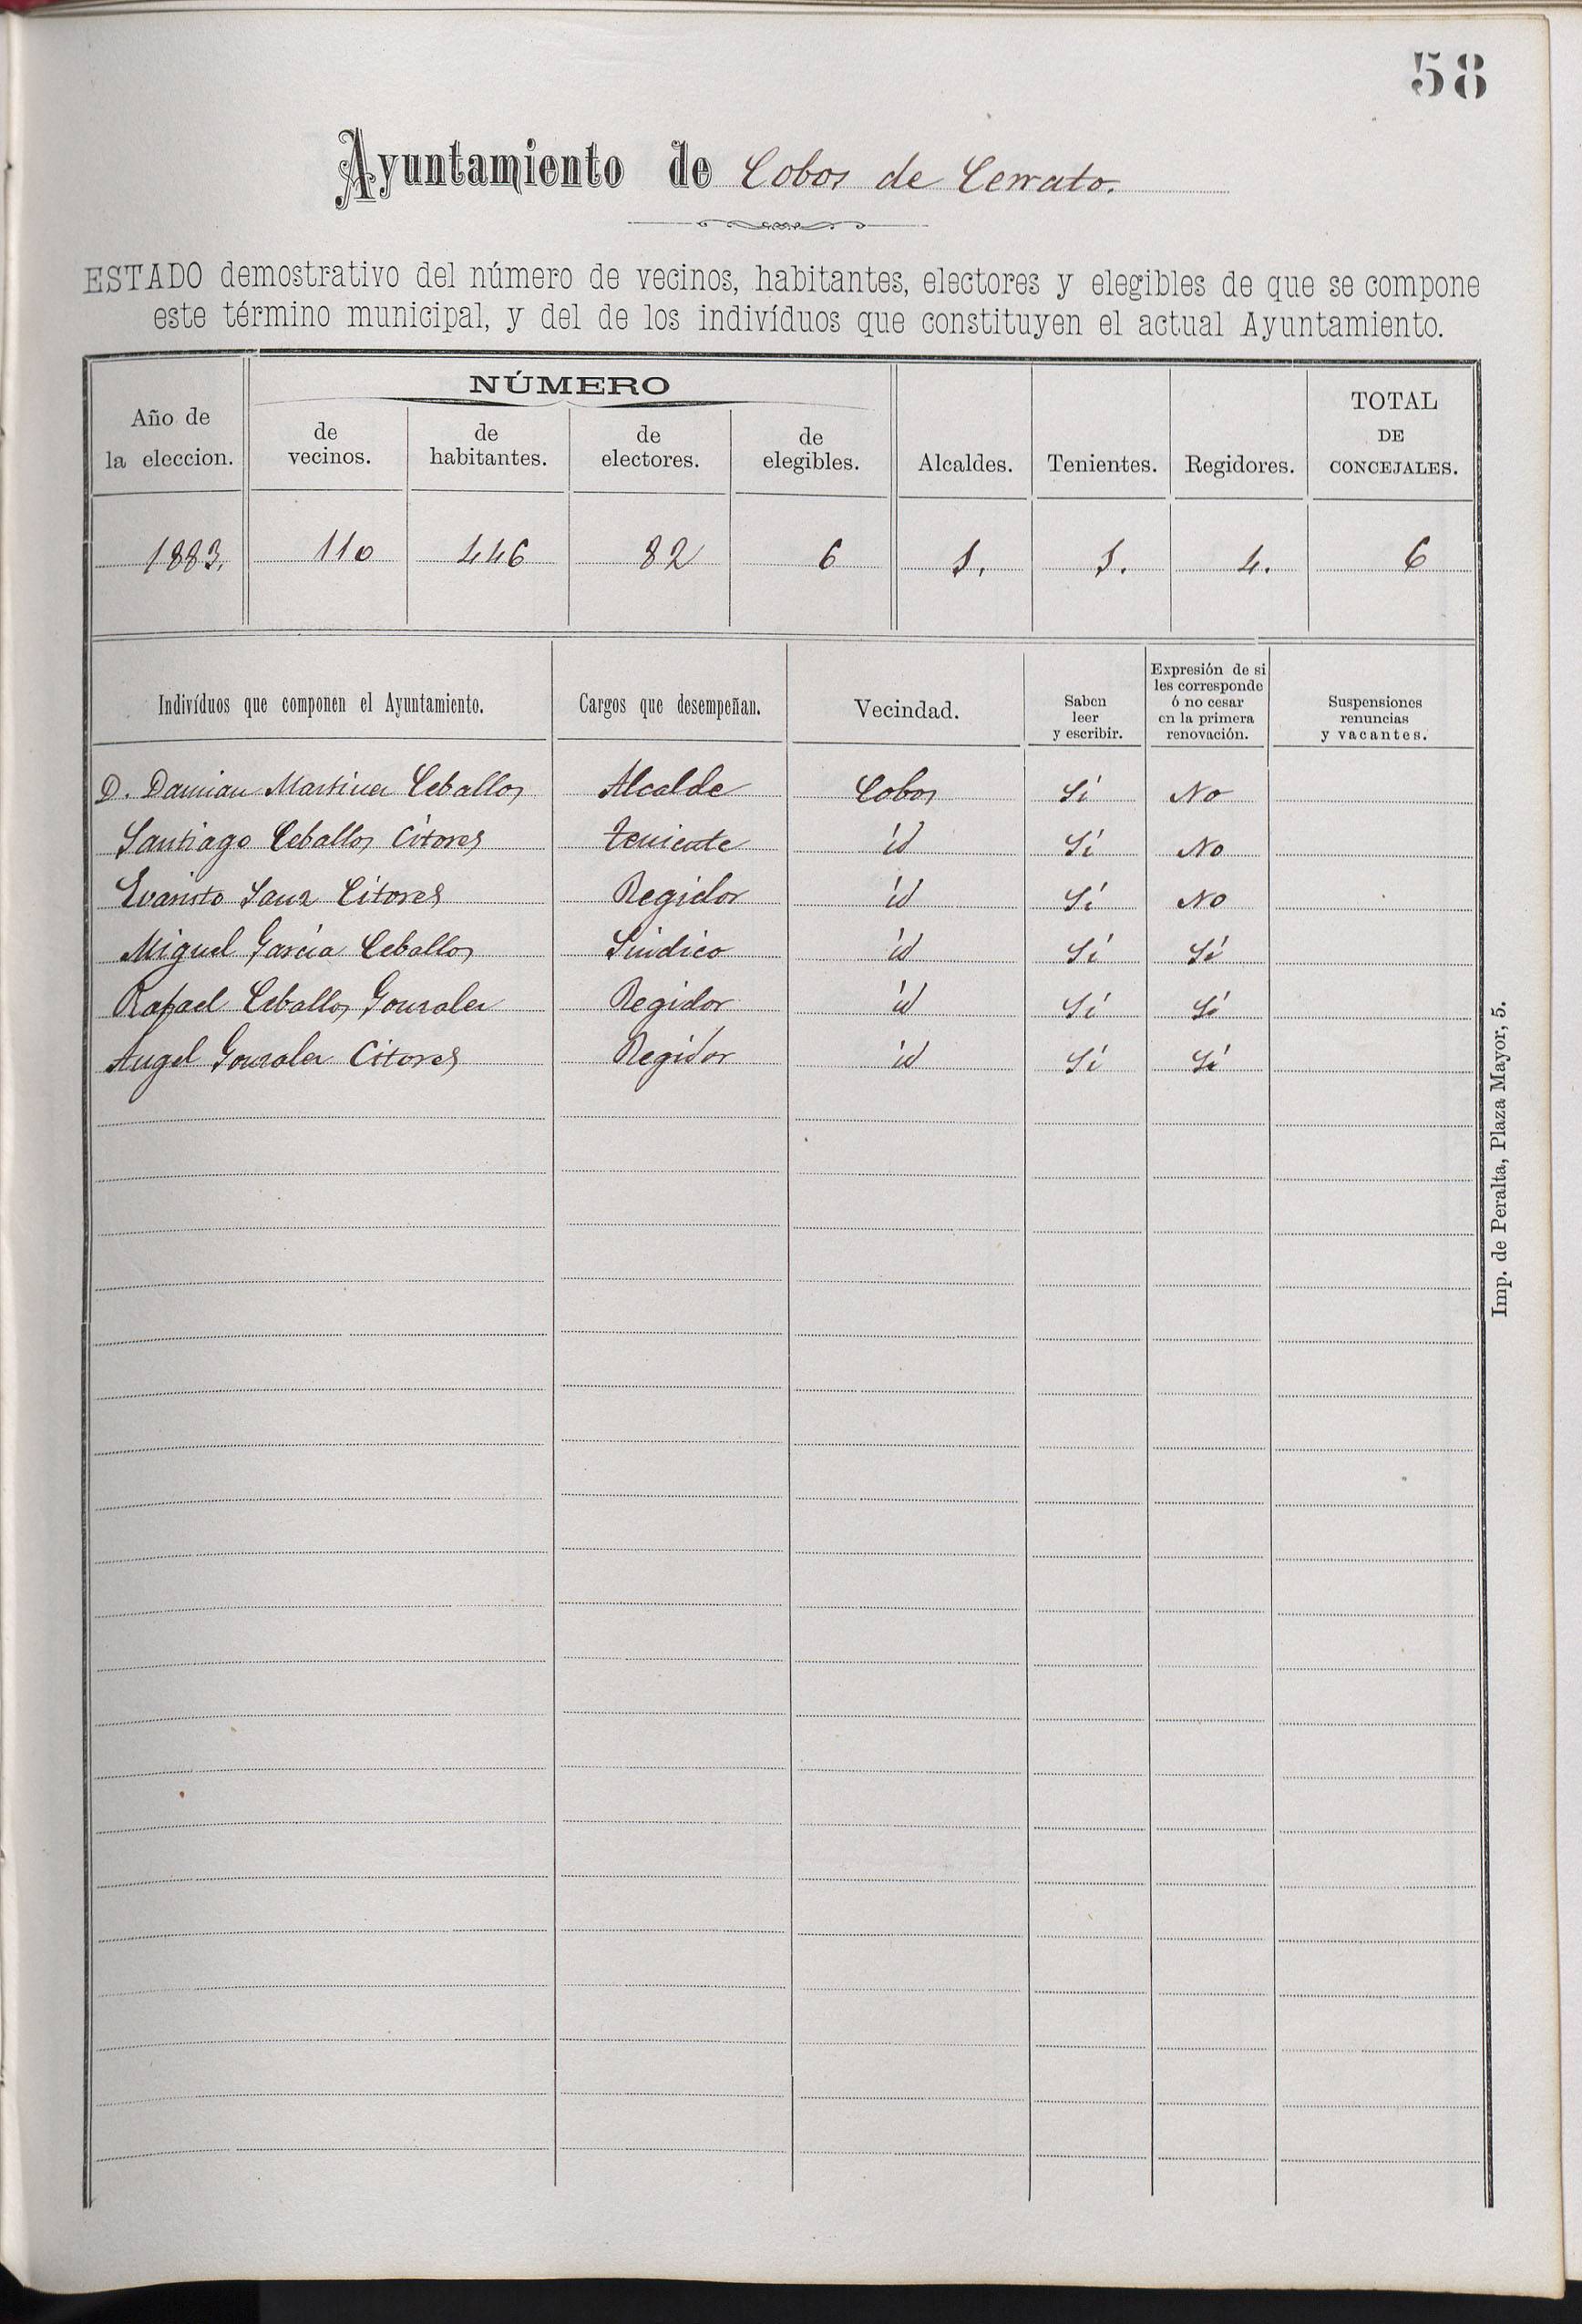 58
Ayuntamiento de Cobos de Cerrato.
ESTADO demostrativo del número de vecinos, habitantes, electores y elegibles de que se compone
este término municipal, y del de los indivíduos que constituyen el actual Ayuntamiento.
Año de la eleccion. NÚMERO de vecinos. de habitantes. de electores. de elegibles. Alcaldes. Tenientes. Regidores. TOTAL DE CONCEJALES.
1883. 110 446 82 6 1. 1. 4. 6
Indivíduos que componen el Ayuntamiento. Cargos que desempeñan. Vecindad. Saben leer y escribir. Expresión de si les corresponde ó no cesar en la primera renovación. Suspensiones renuncias y vacantes.
D. Damian Martinez Ceballos Alcalde Cobos Sí No
Santiago Ceballos Citores teniente id Sí No
Evaristo Sanz Citores Regidor id Sí No
Miguel García Ceballos Sindico id Sí Sí
Rafael Ceballos Gonzalez Regidor id Sí Sí
Angel Gonzalez Citores Regidor id Sí Sí
Imp. de Peralta, Plaza Mayor, 5.